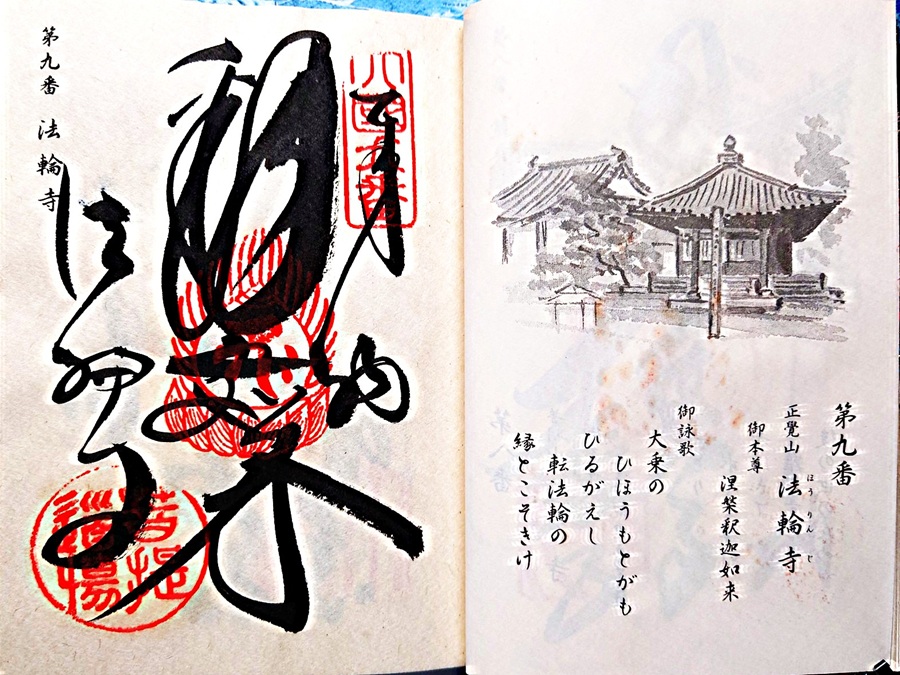 第九番
正覺山 法輪寺
ほうりんじ
御本尊 涅槃釈迦如来
御詠歌
大乗の
ひほうもとがも
ひるがえし
転法輪の
縁とこそきけ
奉納
法輪寺
菩提
道場
第九番 法輪寺